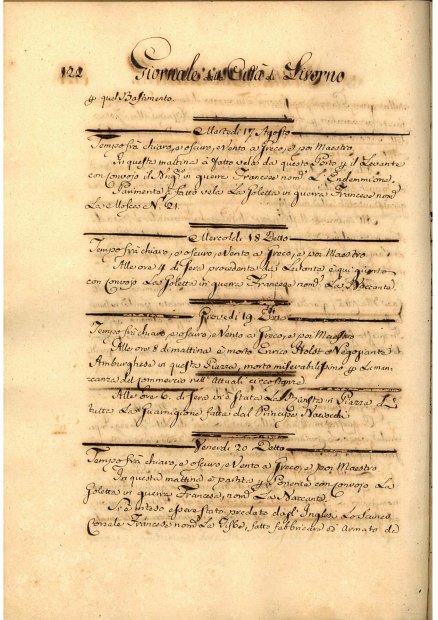 122 Giornale della Città di Livorno
p quel Bastimento.
Martedì 17 Agosto
Tempo frà chiaro, e oscuro, e Vento a Greco, e poi Maestro
In questa mattina à fatto vela da questo Porto p il Levante
con Convojo il Brig. in guerra Francese nom.
Parimente à fatto vela La Goletta in guerra Francese nom.
La Mosca N. 21.
Mercoldì 18 Detto
Tempo frà chiaro, e oscuro, e Vento a Greco, e poi Maestro
Alle ore 4 di Sera procedente da Levante è qui giunto
con Convojo La Goletta in guerra Francese nom. La
Giovedì 19 Do
Tempo frà chiaro, e oscuro, e Vento a Greco, e poi Maestro
Alle ore 8 di mattina è morto Enrico Holst Negoziante
Amburghese in questa Piazza, morto miserabilissimo p La man-
canza del commercio nell' Attuali circostanze.
Alle ore 6. di Sera in Piazza di
tutta La Guarnigione fatta dal Principe
Venerdì 20 Detto
Tempo frà chiaro, e oscuro, e Vento a Greco, e poi Maestro
In questa mattina è partita p Ponente con convojo La
Goletta in guerra Francese, nom.
Si è inteso essere stato predato dagl' Inglesi Lo
Corsale Francese nom. La fatto fabbricare ed Armato da